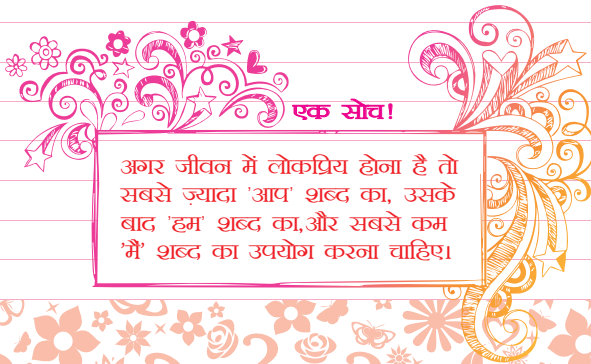 एक सोच!
अगर जीवन में लोकप्रिय होना है तो
सबसे ज़्यादा 'आप' शब्द का, उसके
बाद 'हम' शब्द का,और सबसे कम
'मैं' शब्द का उपयोग करना चाहिए।